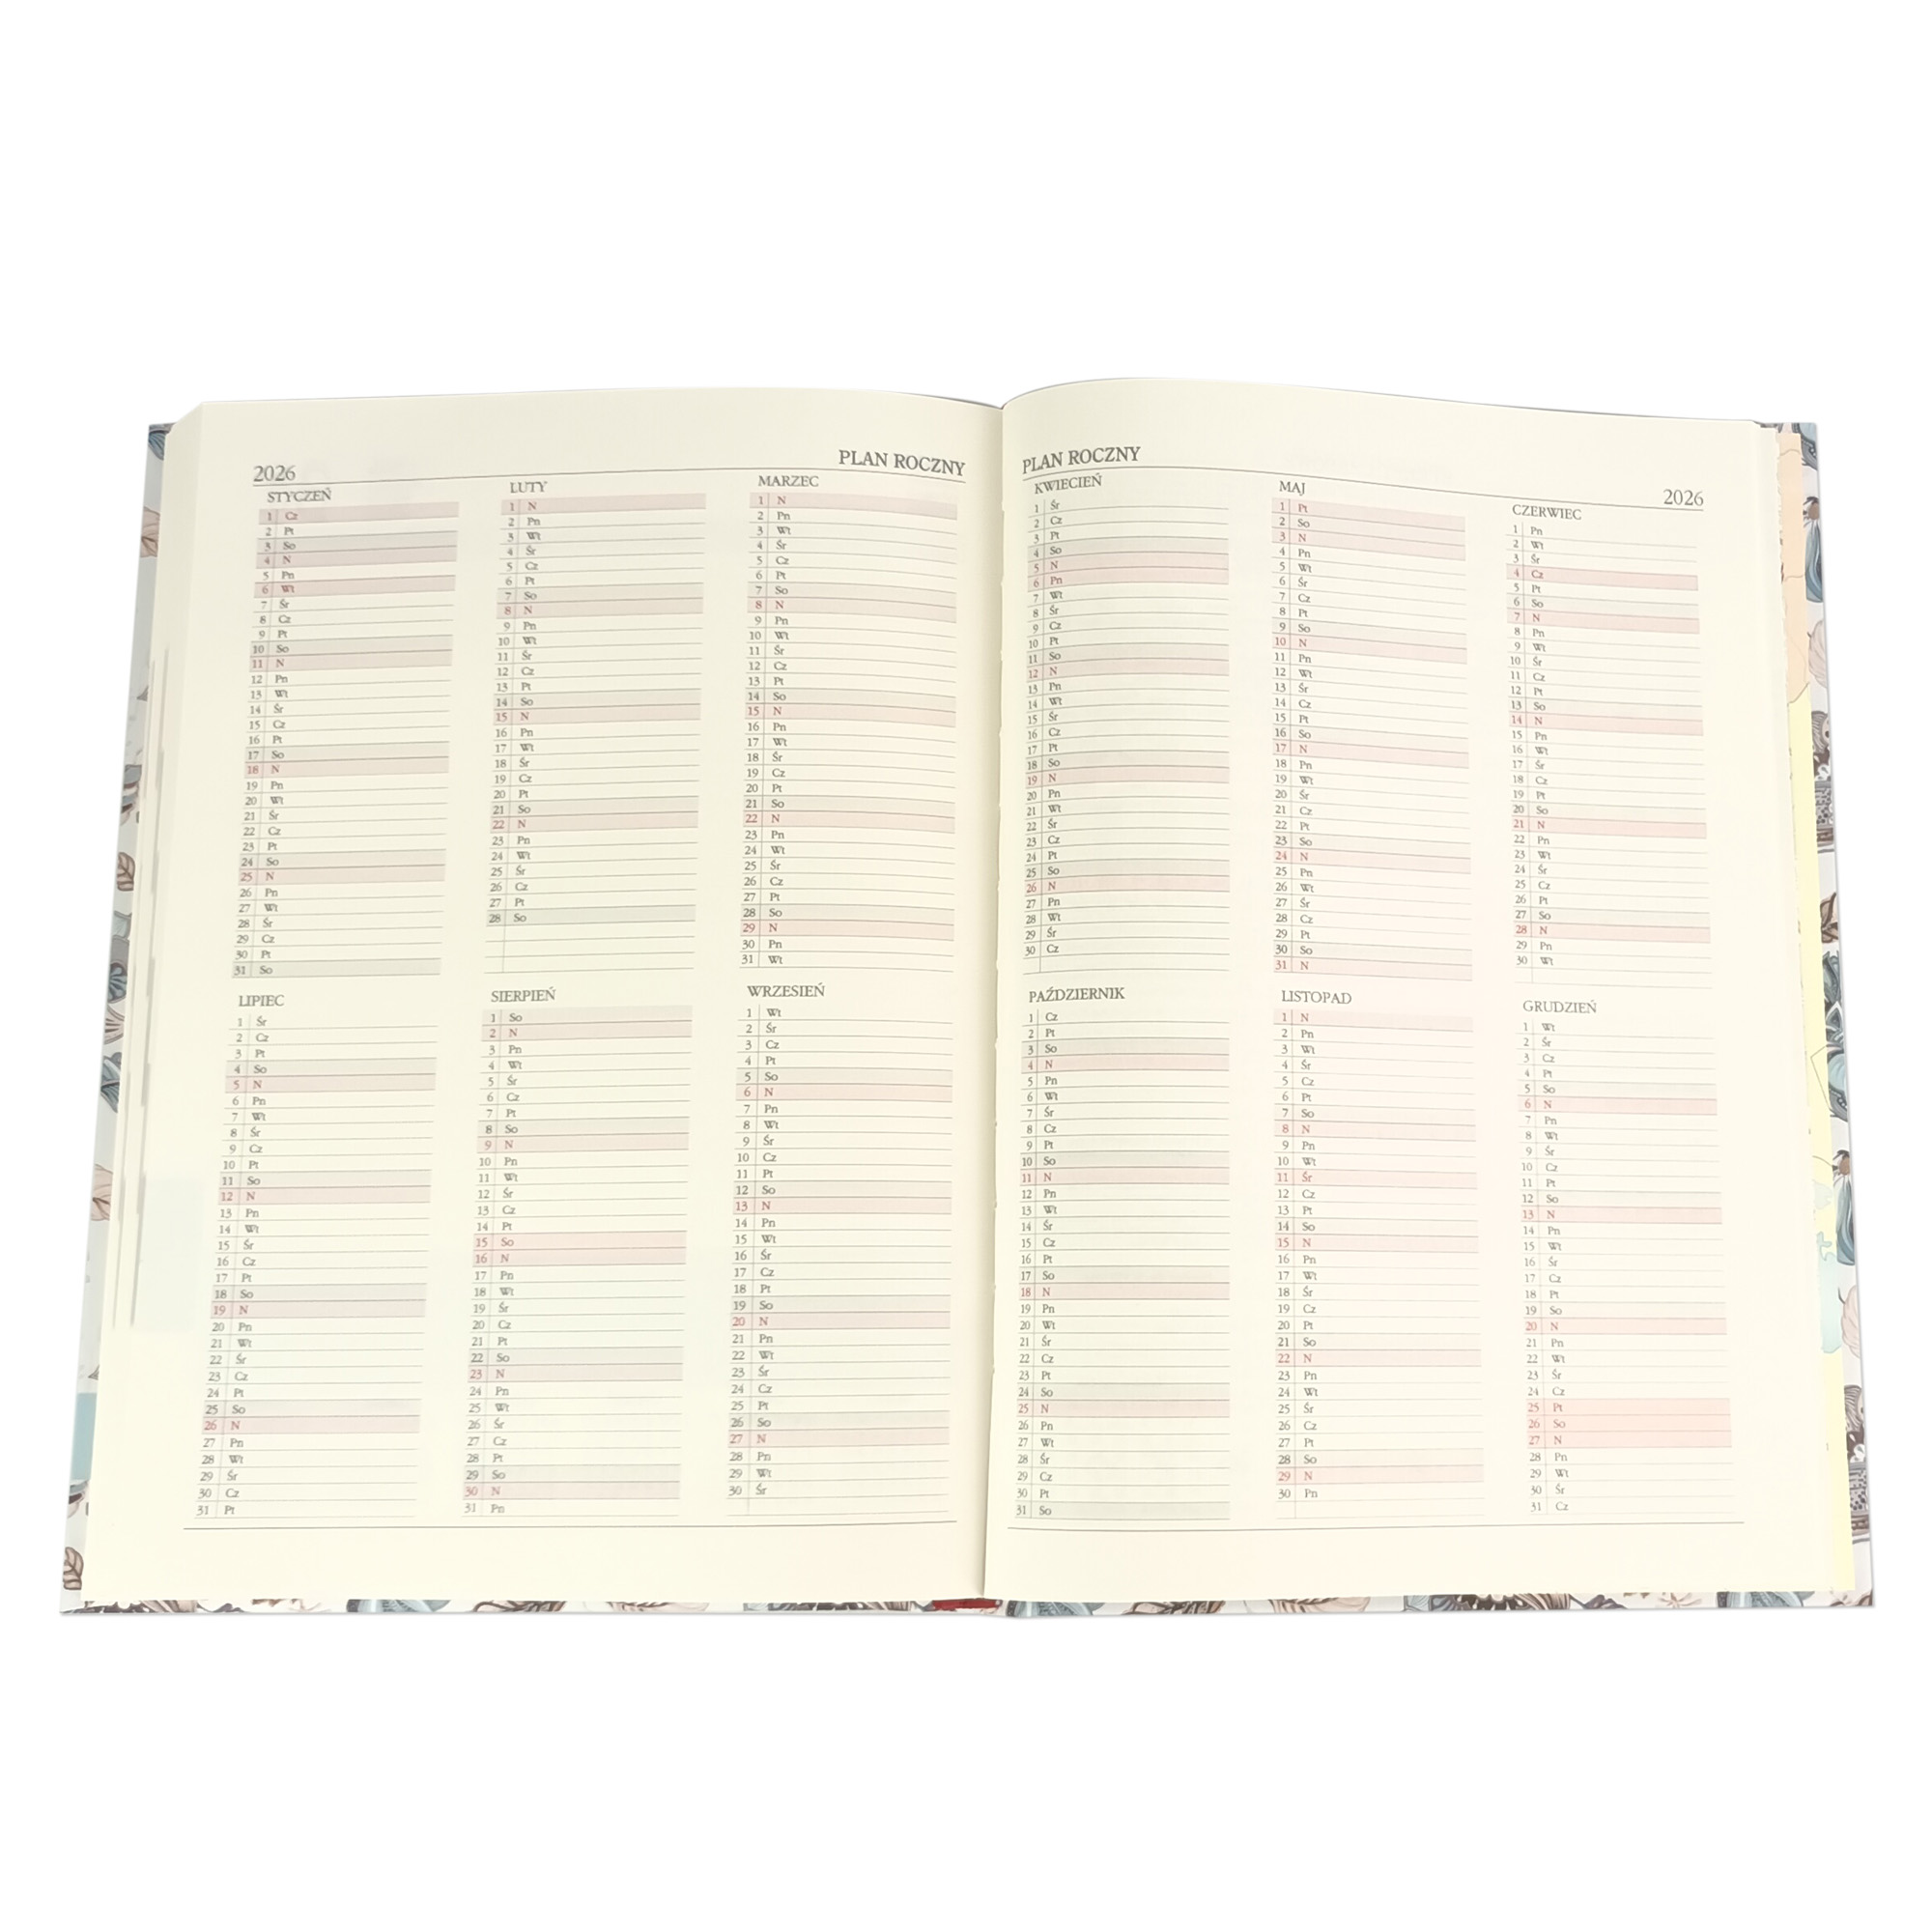 2026 PLAN ROCZNY
STYCZEŃ
1 Cz
2 Pt
3 So
4 N
5 Pn
6 Wt
7 Śr
8 Cz
9 Pt
10 So
11 N
12 Pn
13 Wt
14 Śr
15 Cz
16 Pt
17 So
18 N
19 Pn
20 Wt
21 Śr
22 Cz
23 Pt
24 So
25 N
26 Pn
27 Wt
28 Śr
29 Cz
30 Pt
31 So
LUTY
1 N
2 Pn
3 Wt
4 Śr
5 Cz
6 Pt
7 So
8 N
9 Pn
10 Wt
11 Śr
12 Cz
13 Pt
14 So
15 N
16 Pn
17 Wt
18 Śr
19 Cz
20 Pt
21 So
22 N
23 Pn
24 Wt
25 Śr
26 Cz
27 Pt
28 So
MARZEC
1 N
2 Pn
3 Wt
4 Śr
5 Cz
6 Pt
7 So
8 N
9 Pn
10 Wt
11 Śr
12 Cz
13 Pt
14 So
15 N
16 Pn
17 Wt
18 Śr
19 Cz
20 Pt
21 So
22 N
23 Pn
24 Wt
25 Śr
26 Cz
27 Pt
28 So
29 N
30 Pn
31 Wt
LIPIEC
1 Śr
2 Cz
3 Pt
4 So
5 N
6 Pn
7 Wt
8 Śr
9 Cz
10 Pt
11 So
12 N
13 Pn
14 Wt
15 Śr
16 Cz
17 Pt
18 So
19 N
20 Pn
21 Wt
22 Śr
23 Cz
24 Pt
25 So
26 N
27 Pn
28 Wt
29 Śr
30 Cz
31 Pt
SIERPIEŃ
1 So
2 N
3 Pn
4 Wt
5 Śr
6 Cz
7 Pt
8 So
9 N
10 Pn
11 Wt
12 Śr
13 Cz
14 Pt
15 So
16 N
17 Pn
18 Wt
19 Śr
20 Cz
21 Pt
22 So
23 N
24 Pn
25 Wt
26 Śr
27 Cz
28 Pt
29 So
30 N
31 Pn
WRZESIEŃ
1 Wt
2 Śr
3 Cz
4 Pt
5 So
6 N
7 Pn
8 Wt
9 Śr
10 Cz
11 Pt
12 So
13 N
14 Pn
15 Wt
16 Śr
17 Cz
18 Pt
19 So
20 N
21 Pn
22 Wt
23 Śr
24 Cz
25 Pt
26 So
27 N
28 Pn
29 Wt
30 Śr
PLAN ROCZNY 2026
KWIECIEŃ
1 Śr
2 Cz
3 Pt
4 So
5 N
6 Pn
7 Wt
8 Śr
9 Cz
10 Pt
11 So
12 N
13 Pn
14 Wt
15 Śr
16 Cz
17 Pt
18 So
19 N
20 Pn
21 Wt
22 Śr
23 Cz
24 Pt
25 So
26 N
27 Pn
28 Wt
29 Śr
30 Cz
MAJ
1 Pt
2 So
3 N
4 Pn
5 Wt
6 Śr
7 Cz
8 Pt
9 So
10 N
11 Pn
12 Wt
13 Śr
14 Cz
15 Pt
16 So
17 N
18 Pn
19 Wt
20 Śr
21 Cz
22 Pt
23 So
24 N
25 Pn
26 Wt
27 Śr
28 Cz
29 Pt
30 So
31 N
CZERWIEC
1 Pn
2 Wt
3 Śr
4 Cz
5 Pt
6 So
7 N
8 Pn
9 Wt
10 Śr
11 Cz
12 Pt
13 So
14 N
15 Pn
16 Wt
17 Śr
18 Cz
19 Pt
20 So
21 N
22 Pn
23 Wt
24 Śr
25 Cz
26 Pt
27 So
28 N
29 Pn
30 Wt
PAŹDZIERNIK
1 Cz
2 Pt
3 So
4 N
5 Pn
6 Wt
7 Śr
8 Cz
9 Pt
10 So
11 N
12 Pn
13 Wt
14 Śr
15 Cz
16 Pt
17 So
18 N
19 Pn
20 Wt
21 Śr
22 Cz
23 Pt
24 So
25 N
26 Pn
27 Wt
28 Śr
29 Cz
30 Pt
31 So
LISTOPAD
1 N
2 Pn
3 Wt
4 Śr
5 Cz
6 Pt
7 So
8 N
9 Pn
10 Wt
11 Śr
12 Cz
13 Pt
14 So
15 N
16 Pn
17 Wt
18 Śr
19 Cz
20 Pt
21 So
22 N
23 Pn
24 Wt
25 Śr
26 Cz
27 Pt
28 So
29 N
30 Pn
GRUDZIEŃ
1 Wt
2 Śr
3 Cz
4 Pt
5 So
6 N
7 Pn
8 Wt
9 Śr
10 Cz
11 Pt
12 So
13 N
14 Pn
15 Wt
16 Śr
17 Cz
18 Pt
19 So
20 N
21 Pn
22 Wt
23 Śr
24 Cz
25 Pt
26 So
27 N
28 Pn
29 Wt
30 Śr
31 Cz